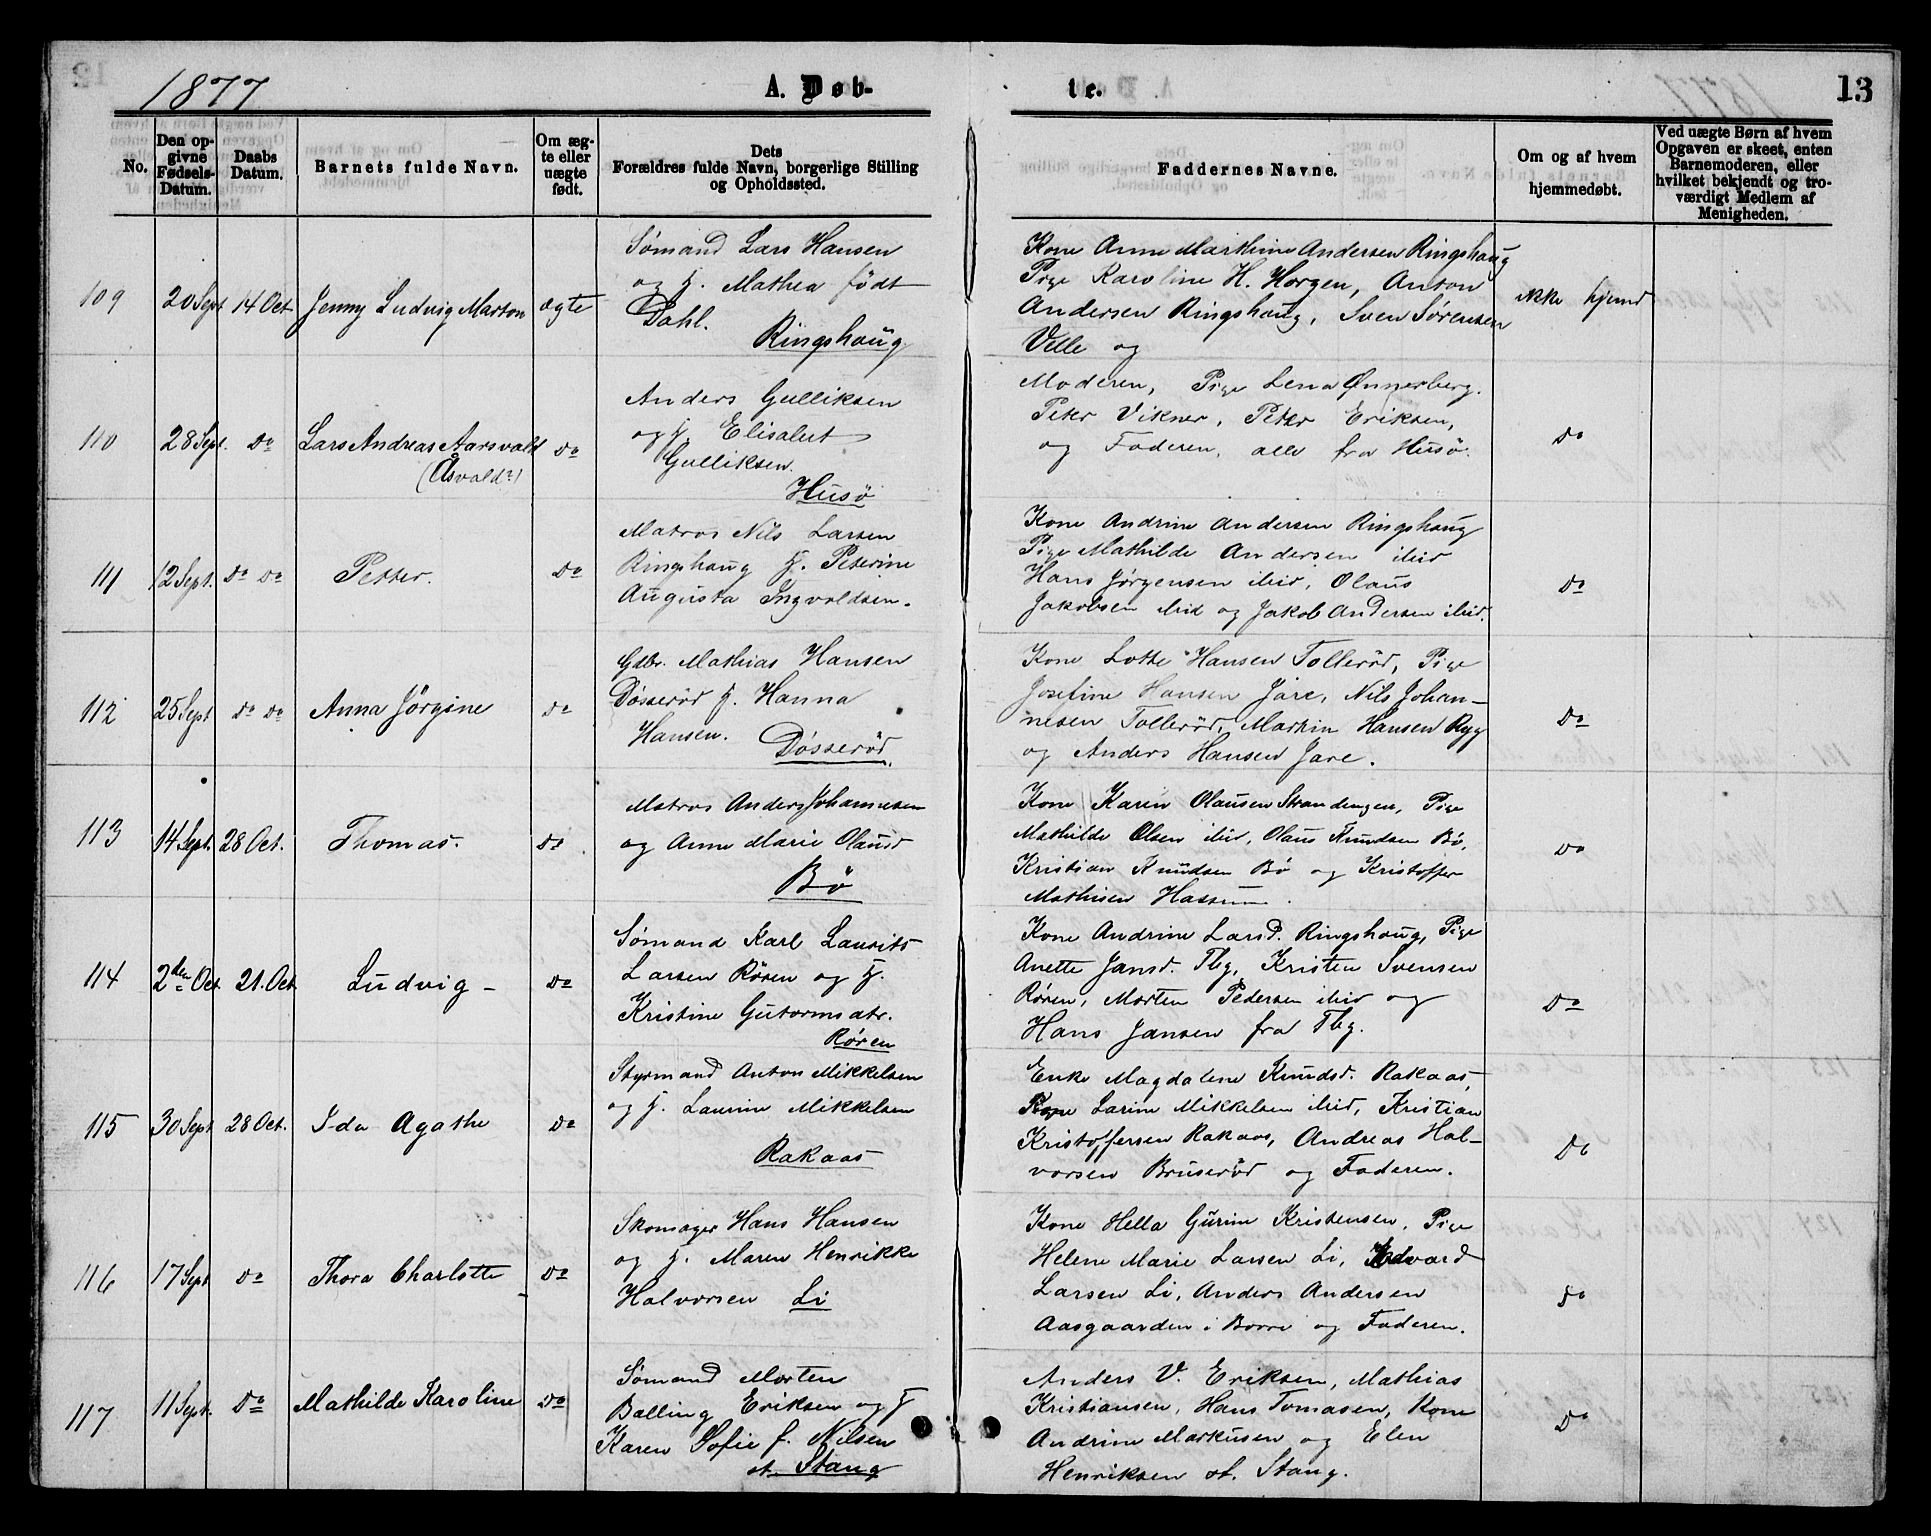 1877 A. Døb- te. 13
No.
Den opgivne Fødsels-Datum.
Daabs Datum.
Barnets fulde Navn.
Om ægte eller uægte født.
Dets Forældres fulde Navn, borgerlige Stilling og Opholdssted.
Faddernes Navne.
Om og af hvem hjemmedøbt.
Ved uægte Børn af hvem Opgaven er skeet, enten Barnemoderen, eller hvilket bekjendt og troværdigt Medlem af Menigheden.
109 20 Sept 14 Oct Jenny Ludvig Marton ægte
Sømand Lars Hansen
og H. Mathea født
Dahl.
Ringshaug
Kone Anne Marthine Andersen Ringshaug
Pige Karoline H. Horgen, Anton
Andersen Ringshaug, Sven Sørensen
Velle og
ikke hjemd
110 28 Sept. Do Lars Andreas Aarsvald Do
(Åsvald?)
Anders Gulliksen
og H. Elisabet
Gulliksen.
Husö
Moderen, Pige Lena Ønnerberg.
Peter Vikner, Peter Eriksen,
og Faderen, alle fra Husö.
Do
111 12 Sept. Do Do Petter. Do
Matros Nils Larsen
Ringshaug H. Peterine
Augusta Ingvoldsen.
Kone Andrine Andersen Ringshaug
Pige Mathilde Andersen ibid
Hans Jörgensen ibid, Olaus
Jakobsen ibid og Jakob Andersen ibid.
Do
112 25 Sept Do Do Anna Jörgine Do
Gdbr. Mathias Hansen
Dösserød H. Hanna
Hansen.
Dösseröd.
Kone Lotte Hansen Tolleröd, Pige
Josefine Hansen Jare, Nils Johan-
nesen Tolleröd, Martin Hansen Ryg
og Anders Hansen Jare.
Do
113 14 Sept. 28 Oct. Thomas. Do
Matros Anders Johannesen
og Anne Marie Olausd
Bö
Kone Karen Olausen Strandengen, Pige
Mathilde Olsen ibid, Olaus Knudsen Bö,
Kristian Knudsen Bö og Kristoffer
Mathisen Hassum.
Do
114 2den Oct 21. Oct Ludvig - Do
Sømand Karl Laurits
Larsen Røren og H.
Kristine Gutormsdtr.
Røren
Kone Andrine Larsd. Ringshaug, Pige
Anette Jansd. Tbg, Kristen Svensen
Røren, Morten Pedersen ibid og
Hans Jansen fra Tbg.
Do
115 30 Sept 28 Oct. Ida Agathe Do
Styrmand Anton Mikkelsen
og H. Laurine Mikkelsen
Rakaas
Enke Magdalene Knudsd. Rakaas,
Pige Larine Mikkelsen ibid, Kristian
Kristoffersen Rakaas, Andreas Hal-
vorsen Bruserød og Faderen.
Do
116 17 Sept Do Thora Charlotte Do
Skomager Hans Hansen
og H. Maren Henrikke
Halvorsen Li
Kone Hella Gurine Kristensen, Pige
Helene Marie Larsen Li, Edvard
Larsen Li, Anders Andersen
Aasgaarden i Borre og Faderen.
Do
117 11 Sept. Do Mathilde Karoline Do
Sømand Morten
Balling Eriksen og H
Karen Sofie f. Nilsen
st. Stang
Anders V. Eriksen, Mathias
Kristiansen, Hans Tomasen, Kone
Andrine Markusen og Elen
Henriksen st. Stang.
Do